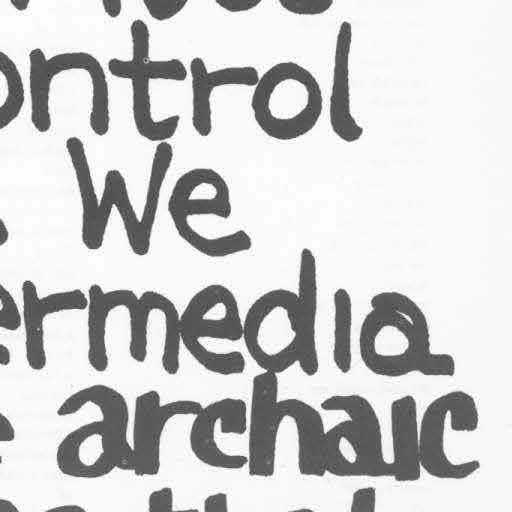 ontrol
We
ermedia
archaic